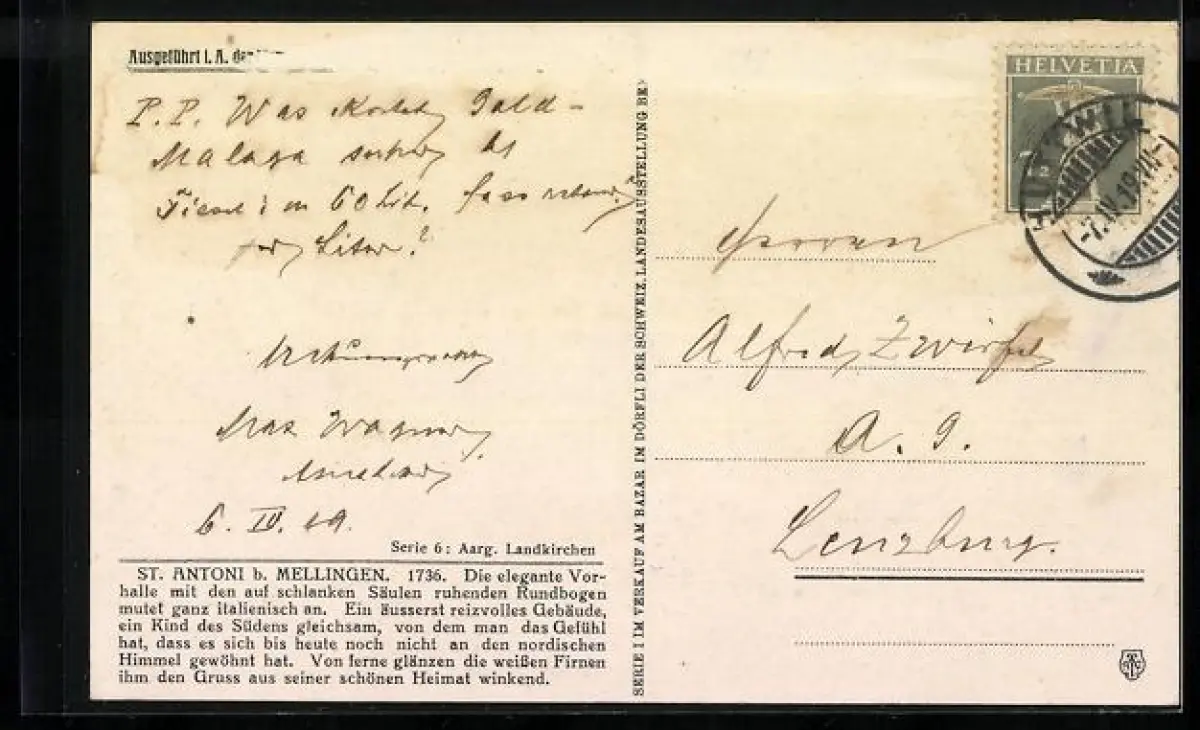 Ausgeführt i. A. der
P. P. Was kostet Gold-
Malaga
in 60 Lit. fass
per Liter?
Max Wagner
6. IV. 19.
Serie 6: Aarg. Landkirchen
ST. ANTONI b. MELLINGEN. 1736. Die elegante Vor-
halle mit den auf schlanken Säulen ruhenden Rundbogen
mutet ganz italienisch an. Ein äusserst reizvolles Gebäude,
ein Kind des Südens gleichsam, von dem man das Gefühl
hat, dass es sich bis heute noch nicht an den nordischen
Himmel gewöhnt hat. Von ferne glänzen die weißen Firnen
ihm den Gruss aus seiner schönen Heimat winkend.
SERIE I IM VERKAUF AM BAZAR IM DÖRFLI DER SCHWEIZ. LANDESAUSSTELLUNG BE
HELVETIA
7.IV.19
Herren
Alfred Zweifel
A. G.
Lenzburg.